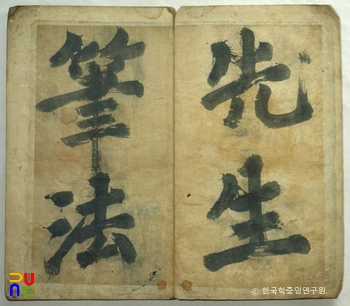 先生
筆法
© 한국학중앙연구원